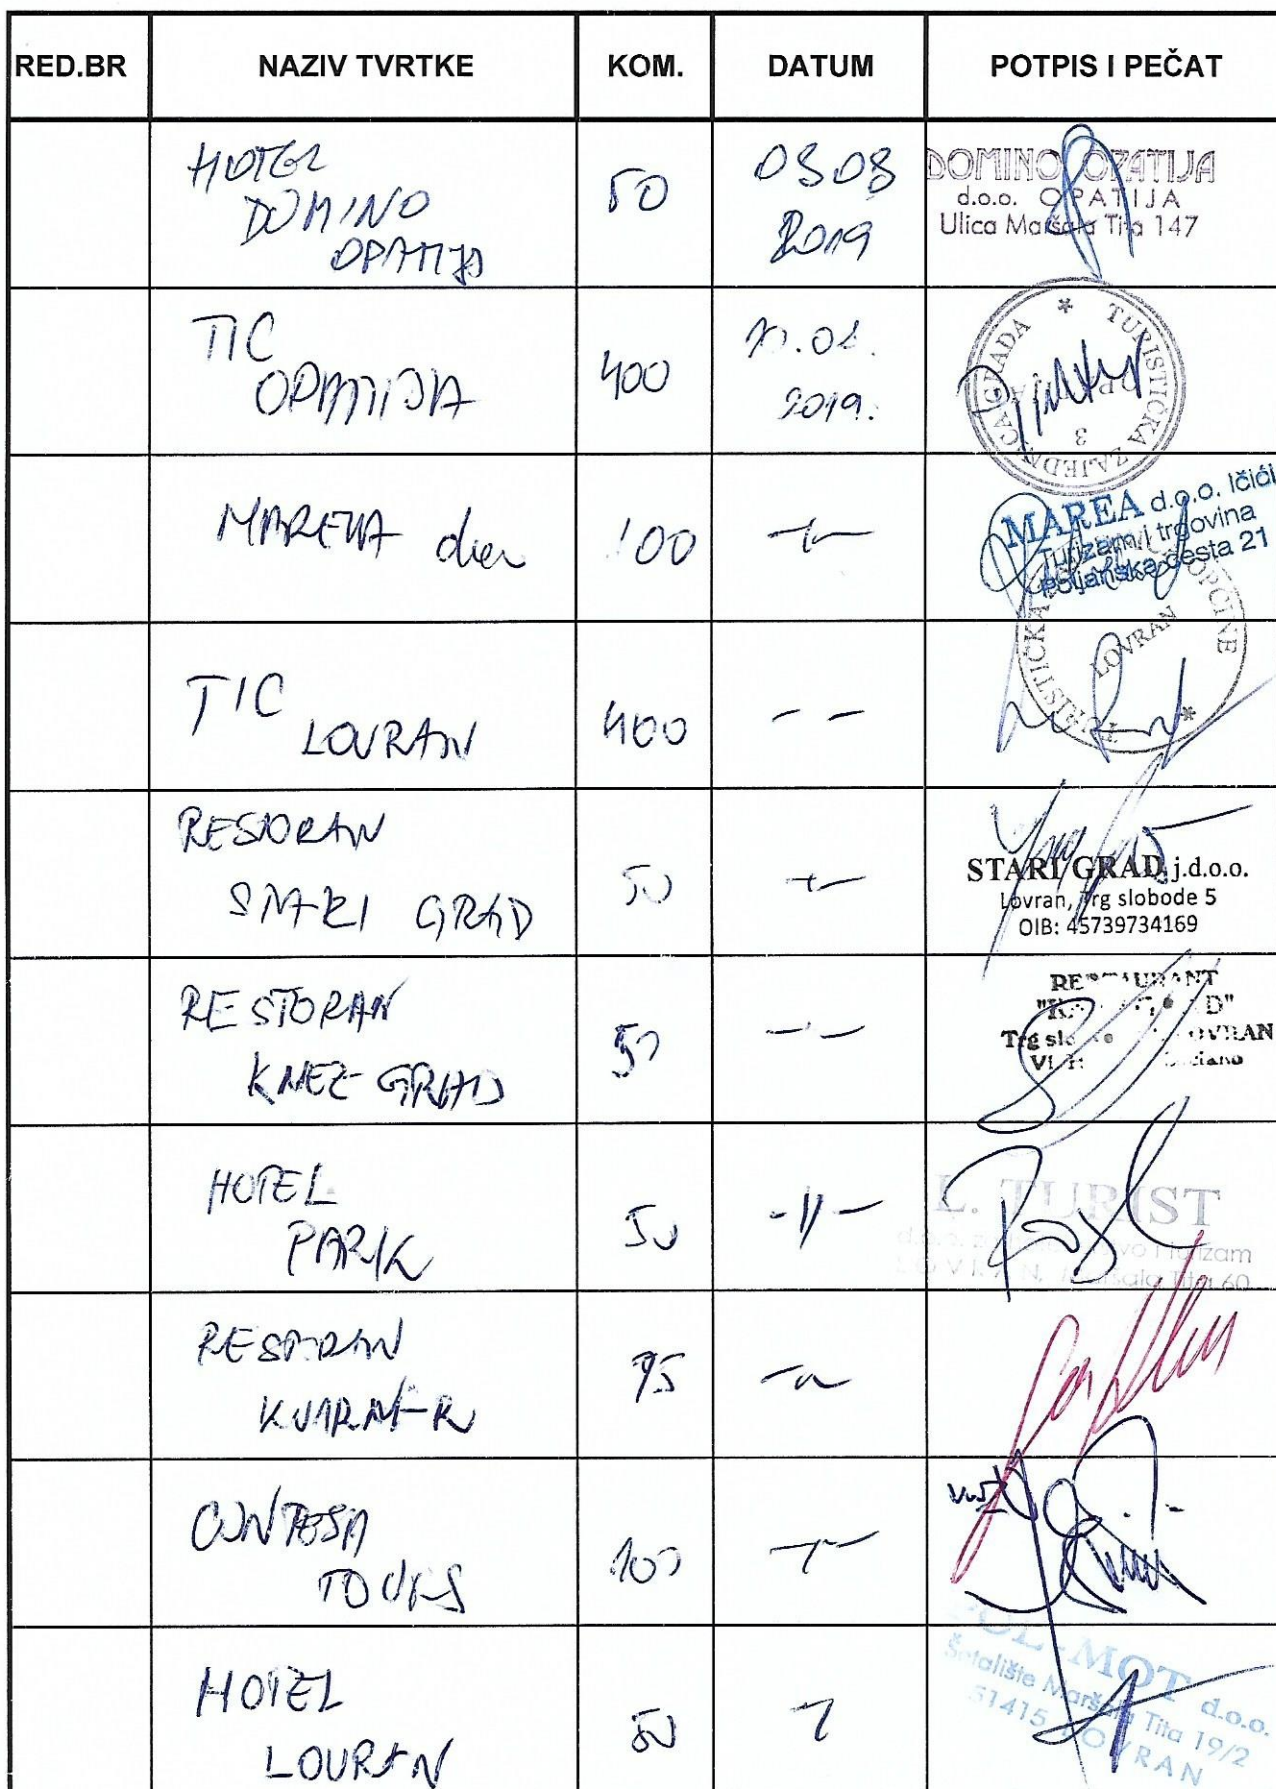 RED.BR NAZIV TVRTKE KOM. DATUM POTPIS I PEČAT
HOTEL
DOMINO
OPATIJA
50
0808
2019
DOMINO OPATIJA
d.o.o. OPATIJA
Ulica Maršala Tita 147
TIC
OPATIJA
400
2019.
TURISTIČKA ZAJEDNICA GRADA
OPATIJA
3
100
MAREA d.o.o. Ičići
Turizam i trgovina
Poljanska cesta 21
TIC
LOVRAN
400
TURISTIČKA OPĆINE
LOVRAN
RESTORAN
STARI GRAD
50
STARI GRAD j.d.o.o.
Lovran, Trg slobode 5
OIB: 45739734169
RESTORAN
KNEZ GRAD
50
RESTAURANT
Trg LOVRAN
HOTEL
PARK
50
-11-
L. TURIST
turizam
LOVRAN, Maršala Tita 60
RESTORAN
KVARNER
75
CONTESA
TOURS
100
HOTEL
LOVRAN
50
MOT d.o.o.
Šetalište Maršala Tita 19/2
51415 LOVRAN